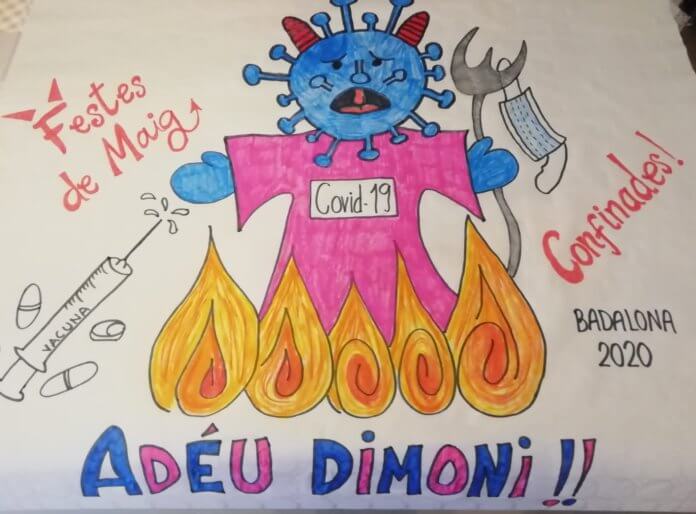 Festes
de Maig
Covid-19
Confinades!
VACUNA
BADALONA
2020
ADÉU DIMONI!!